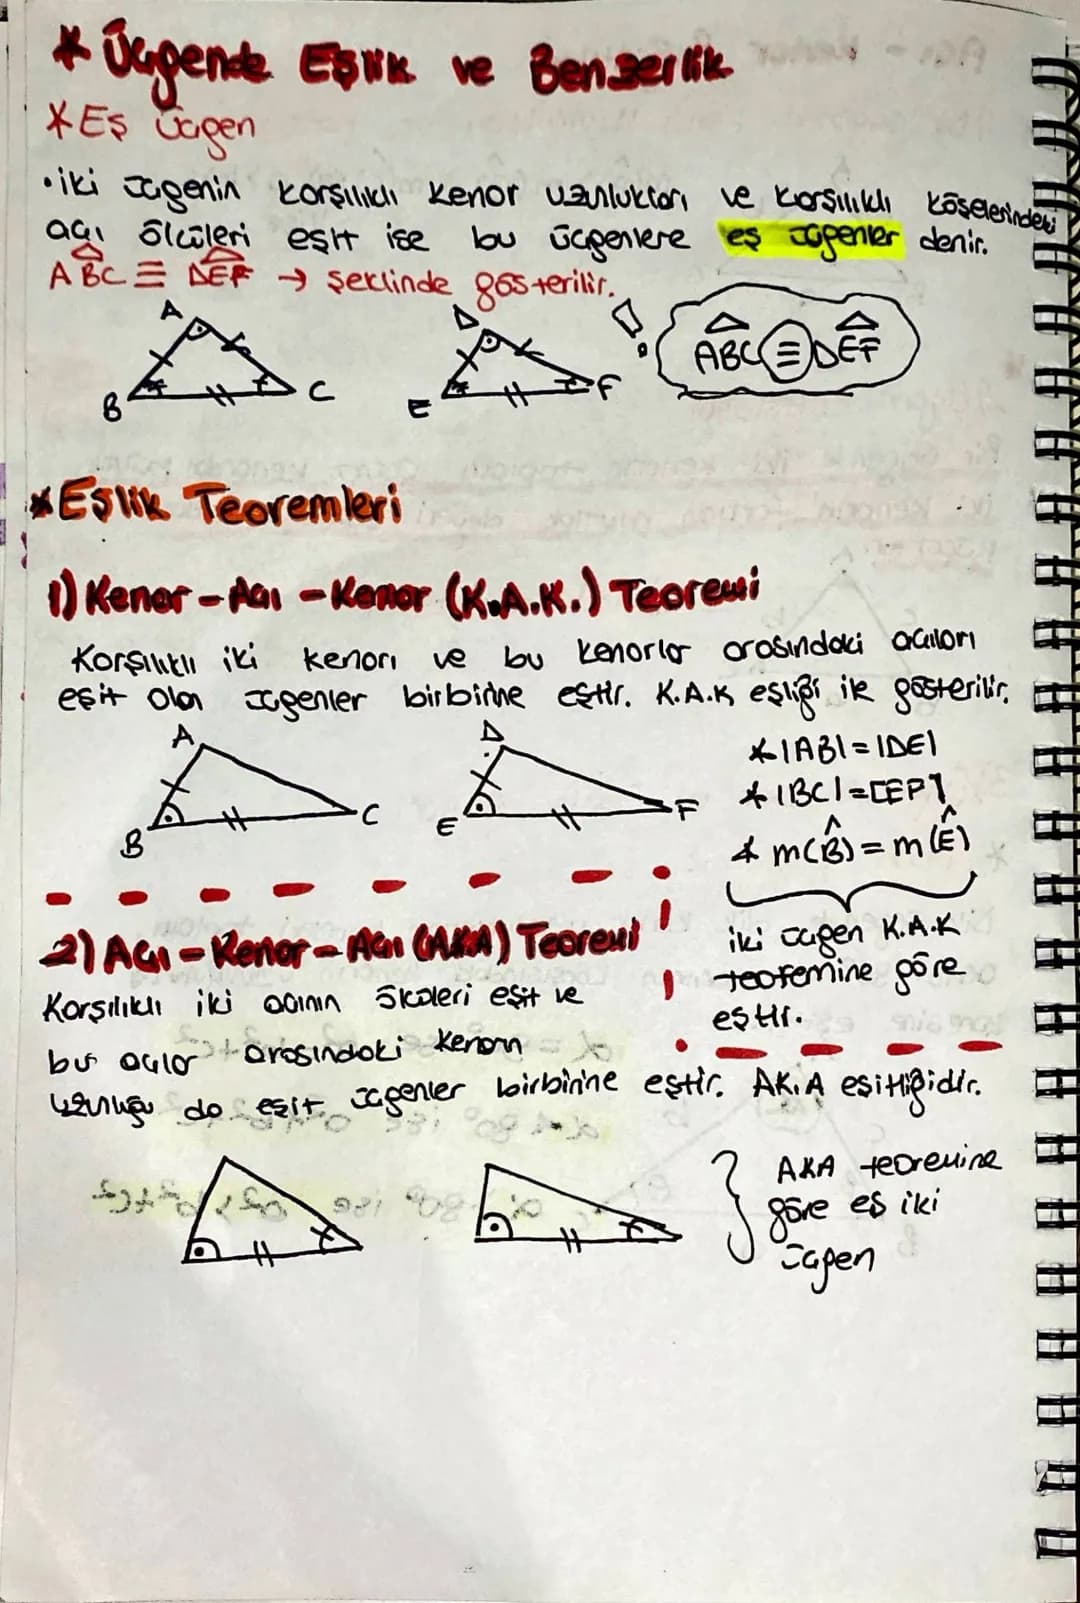 * Üçgende Eşlik ve Benzerlik
* Eş Üçgen
• iki üçgenin karşılıklı kenar uzunlukları ve karşılıklı köşelerindeki
açı ölçüleri eşit ise bu üçgenlere eş üçgenler denir.
ABC ≡ DEF → şeklinde gösterilir.
A
B
C
D
E
F
!
ABC ≡ DEF
* Eşlik Teoremleri
1) Kenar - Açı - Kenar (K.A.K.) Teoremi
Karşılıklı iki kenarı ve bu kenarlar arasındaki açıları
eşit olan üçgenler birbirine eştir. K.A.K eşliği ile gösterilir.
A
B
C
D
E
F
* |AB| = |DE|
* |BC| = [EF]
* m(B̂) = m(Ê)
iki üçgen K.A.K
teoremine göre
eştir.
2) Açı - Kenar - Açı (AKA) Teoremi
Karşılıklı iki açının ölçüleri eşit ve
bu açılar arasındaki kenarın
uzunluğu da eşit üçgenler birbirine eştir. AK.A eşitliğidir.
AKA teoremine
göre eş iki
üçgen